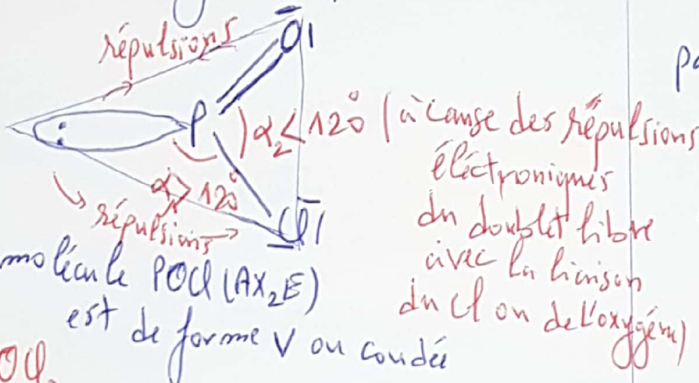 répulsions
O
P
α₂<120° (à cause des répulsions
éléctroniques
du doublet libre
avec la liaison
du Cl ou de l'oxygéne)
α>120°
répulsions
Cl
molécule POCl (AX₂E)
est de forme V ou coudée
OCl